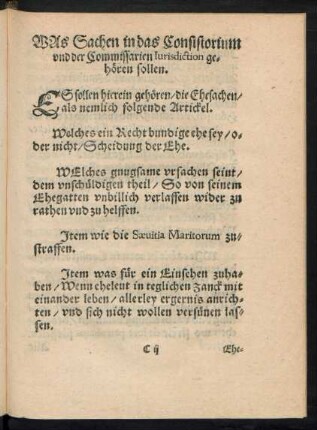 WAs Sachen in das Consistorium
vnd der Commissarien Iurisdiction ge-
hören sollen.
ES sollen hierein gehören/die Ehesachen/
als nemlich folgende Artickel.
Welches ein Recht bundige ehe sey/o-
der nicht/Scheidung der Ehe.
WElches gnugsame vrsachen seint/
dem vnschüldigen theil/So von seinem
Ehegatten vnbillich verlassen wider zu
rathen vnd zu helffen.
Item wie die Sæuitia Maritorum zu-
straffen.
Item was für ein Einsehen zuha-
ben/Wenn eheleut in teglichen Zanck mit
einander leben/allerley ergernis anrich-
ten/vnd sich nicht wollen versünen las-
sen.
C ij Ehe-